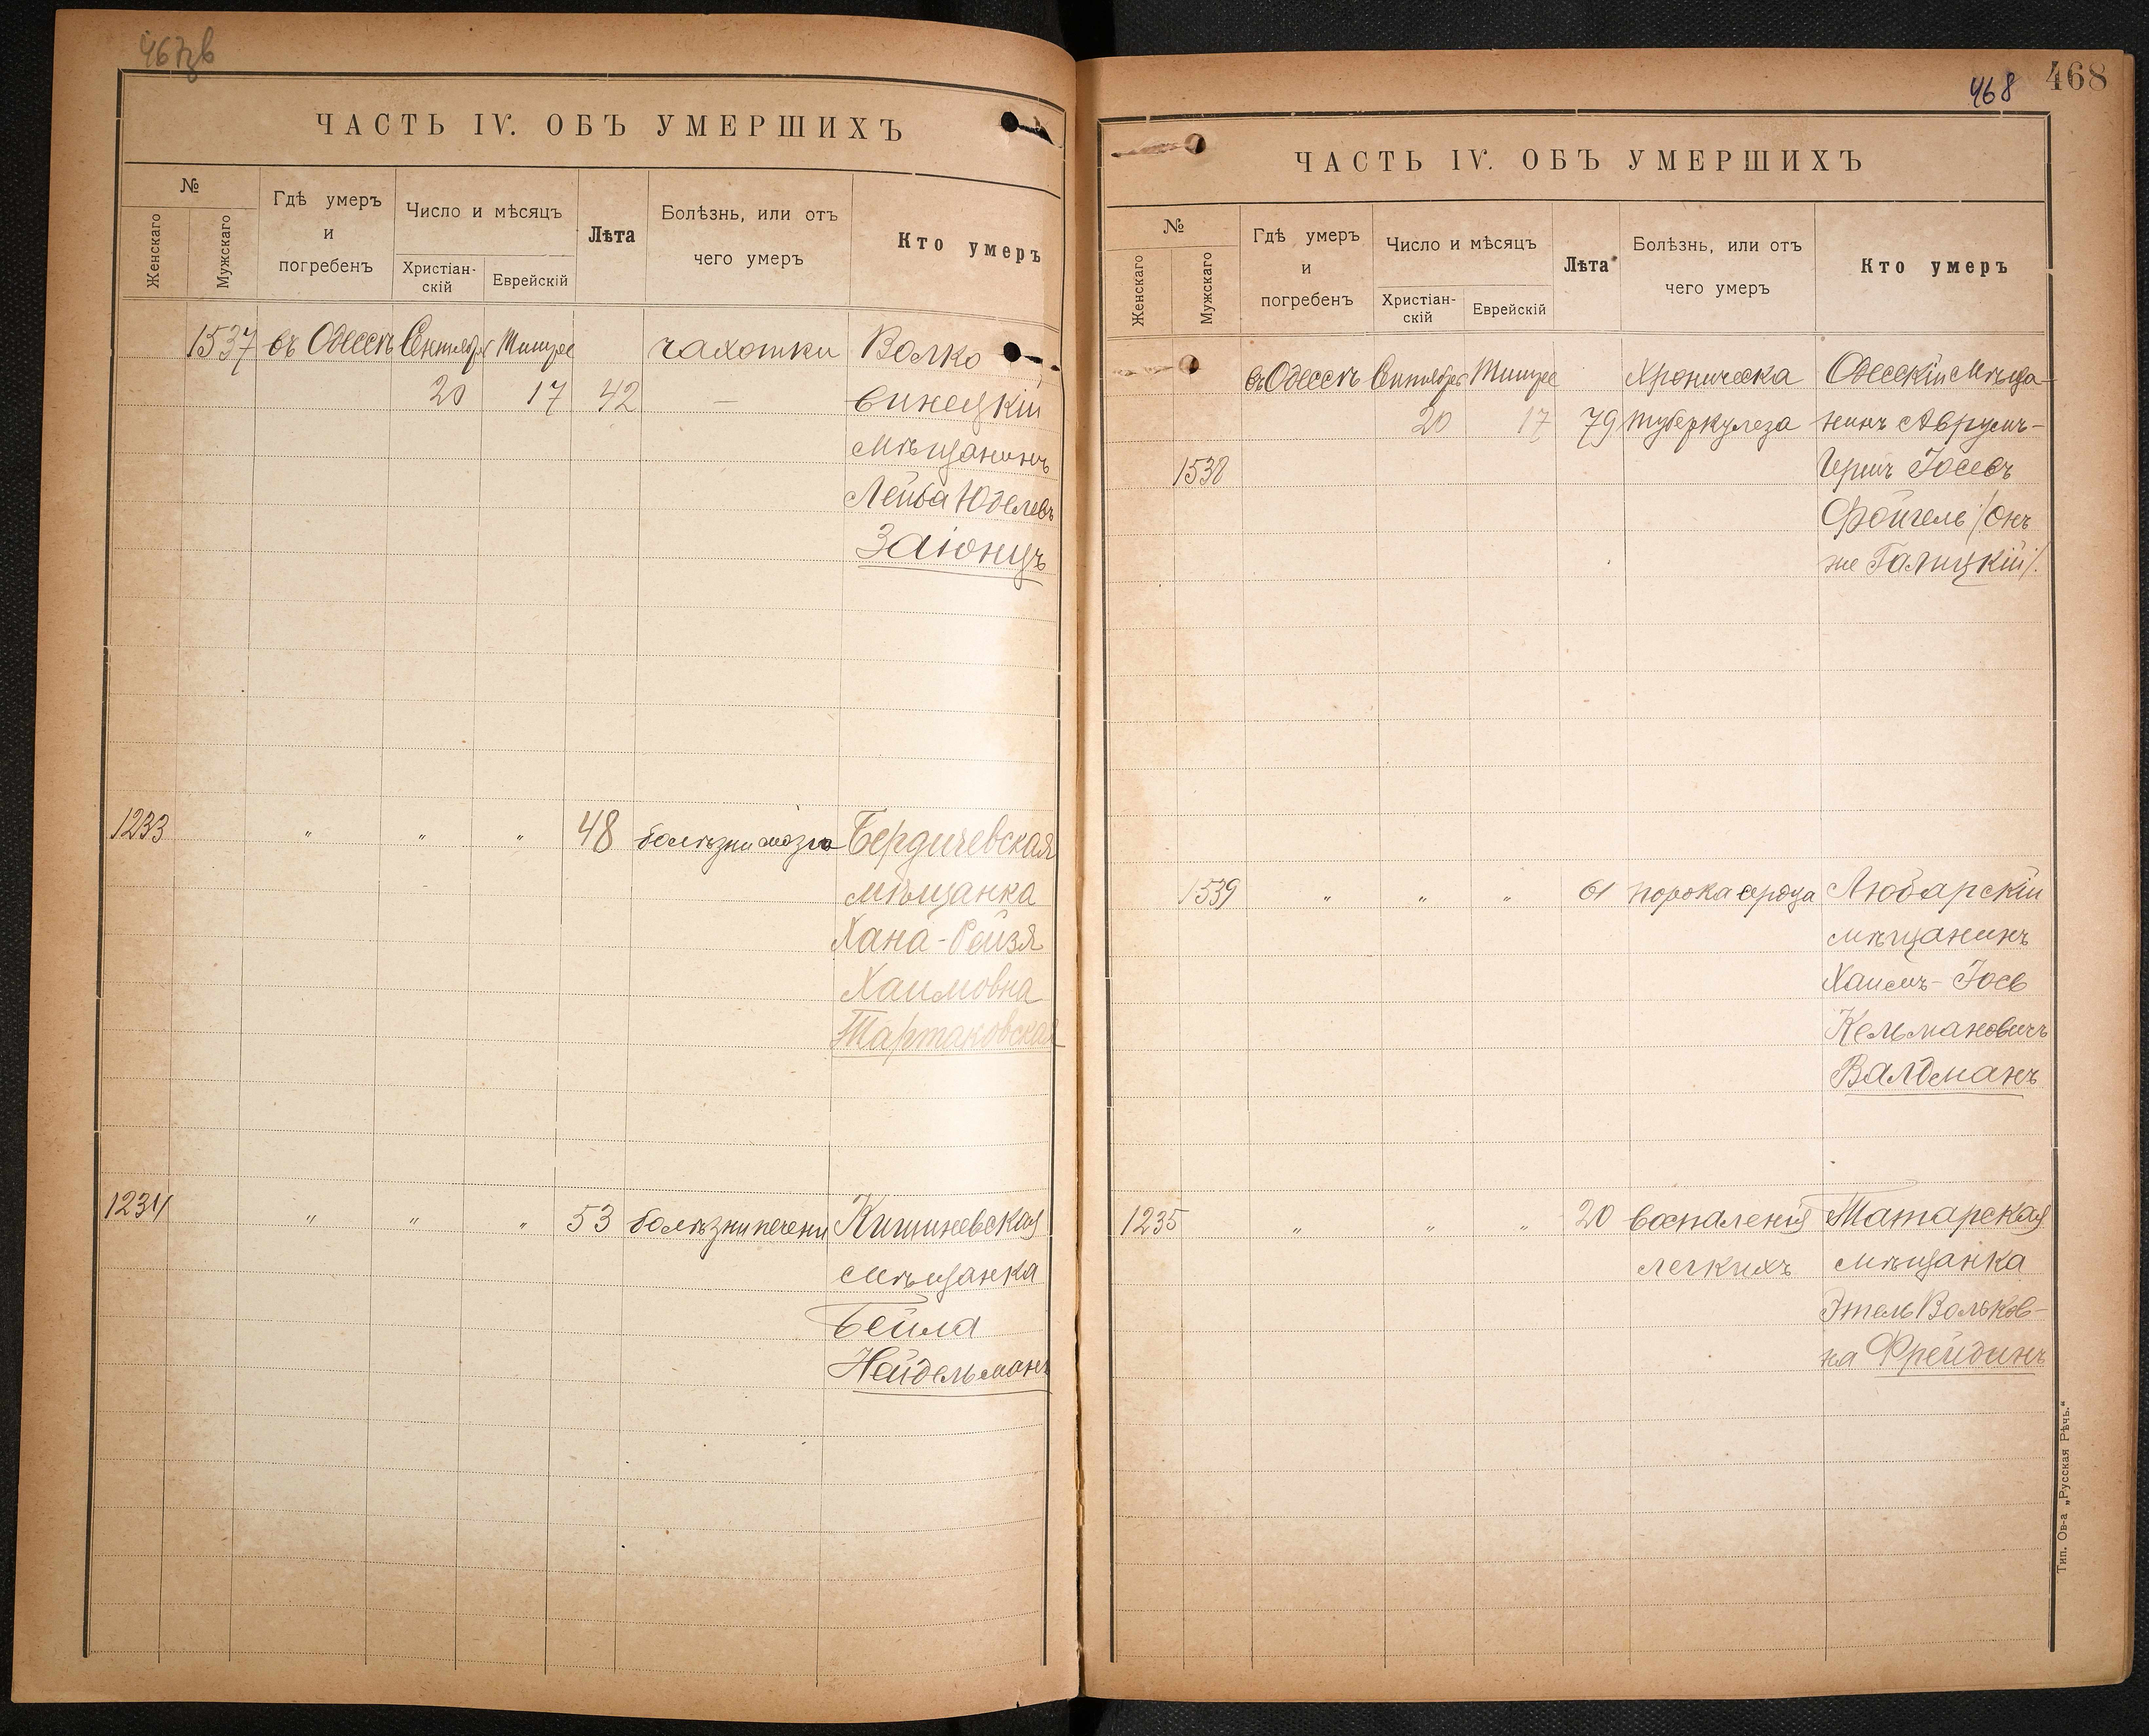 467об
ЧАСТЬ IV. ОБЪ УМЕРШИХЪ
№
Женскаго
Мужскаго
Гдѣ умеръ
и
погребенъ
Число и мѣсяцъ
Христіан-
скій
Еврейскій
Лѣта
Болѣзнь, или отъ
чего умеръ
Кто умеръ
1537 въ Одессѣ Сентября Тишрее чахотки Волко
20 17 42 — винецкій
мѣщанинъ
Лейба Юделевъ
Заіонцъ
1233 " " " 48 болѣзни мозга Бердичевская
мѣщанка
Хана-Рейзя
Хаимовна
Тартаковская
1234 " " " 53 болѣзни печени Кишиневская
мѣщанка
Бейла
Нейдельманъ
468
468
ЧАСТЬ IV. ОБЪ УМЕРШИХЪ
№
Женскаго
Мужскаго
Гдѣ умеръ
и
погребенъ
Число и мѣсяцъ
Христіан-
скій
Еврейскій
Лѣта
Болѣзнь, или отъ
чего умеръ
Кто умеръ
въ Одессѣ Сентября Тишрее Хроническа Одесскій мѣща-
20 17 79 туберкулеза нинъ Аврумъ-
1538 Гершъ Іосевъ
Фойгель /онъ
же Галицкій/.
1539 " " " 61 порока сердца Любарскій
мѣщанинъ
Хаимъ-Іосъ
Кельмановичъ
Валдманъ
1235 " " " 20 воспаленія Татарская
легкихъ мѣщанка
Этель Вольков-
на Фрейдинъ
Тип. Ов-а „Русская Рѣчь.“